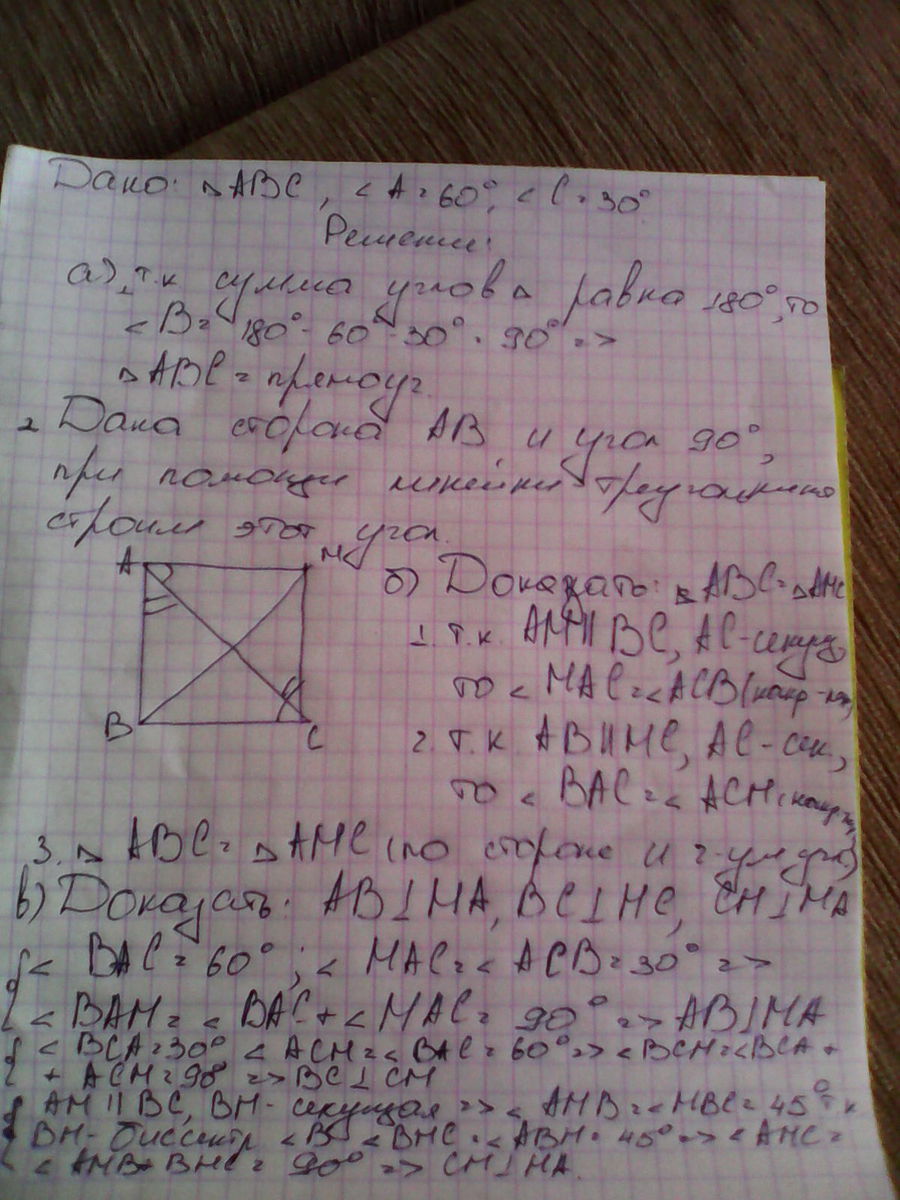 Дано: ▵ABC, <A=60°, <C=30°
Решение:
а) 1. т.к сумма углов ▵ равна 180°, то
<B= 180°-60°-30°=90° =>
▵ABC = прямоуг.
2. Дана сторона AB, и угол 90°,
при помощи линейки треугольника
строим этот угол.
A M
B C
б) Доказать: ▵ABC=▵AMC
1. т.к. AM||BC, AC-секущ,
то <MAC=<ACB (накр-леж)
2. т.к. AB||MC, AC-сек.,
то <BAC=<ACM
3. ▵ABC=▵AMC (по стороне и 2-ум угл)
в) Доказать: AB⊥MA, BC⊥MC, CM⊥MA
<BAC=60°; <MAC=<ACB=30° =>
<BAM=<BAC+<MAC= 90° => AB⊥MA
<BCA=30° <ACM=<BAC=60° => <BCM=<BCA+
+ ACM=90° => BC⊥CM
AM||BC, BM-секущая => <AMB=<MBC=45° т.к
BM-биссектр <B <BMC=<ABM=45° => <AMC=
<AMB+BMC= 90° => CM⊥MA.